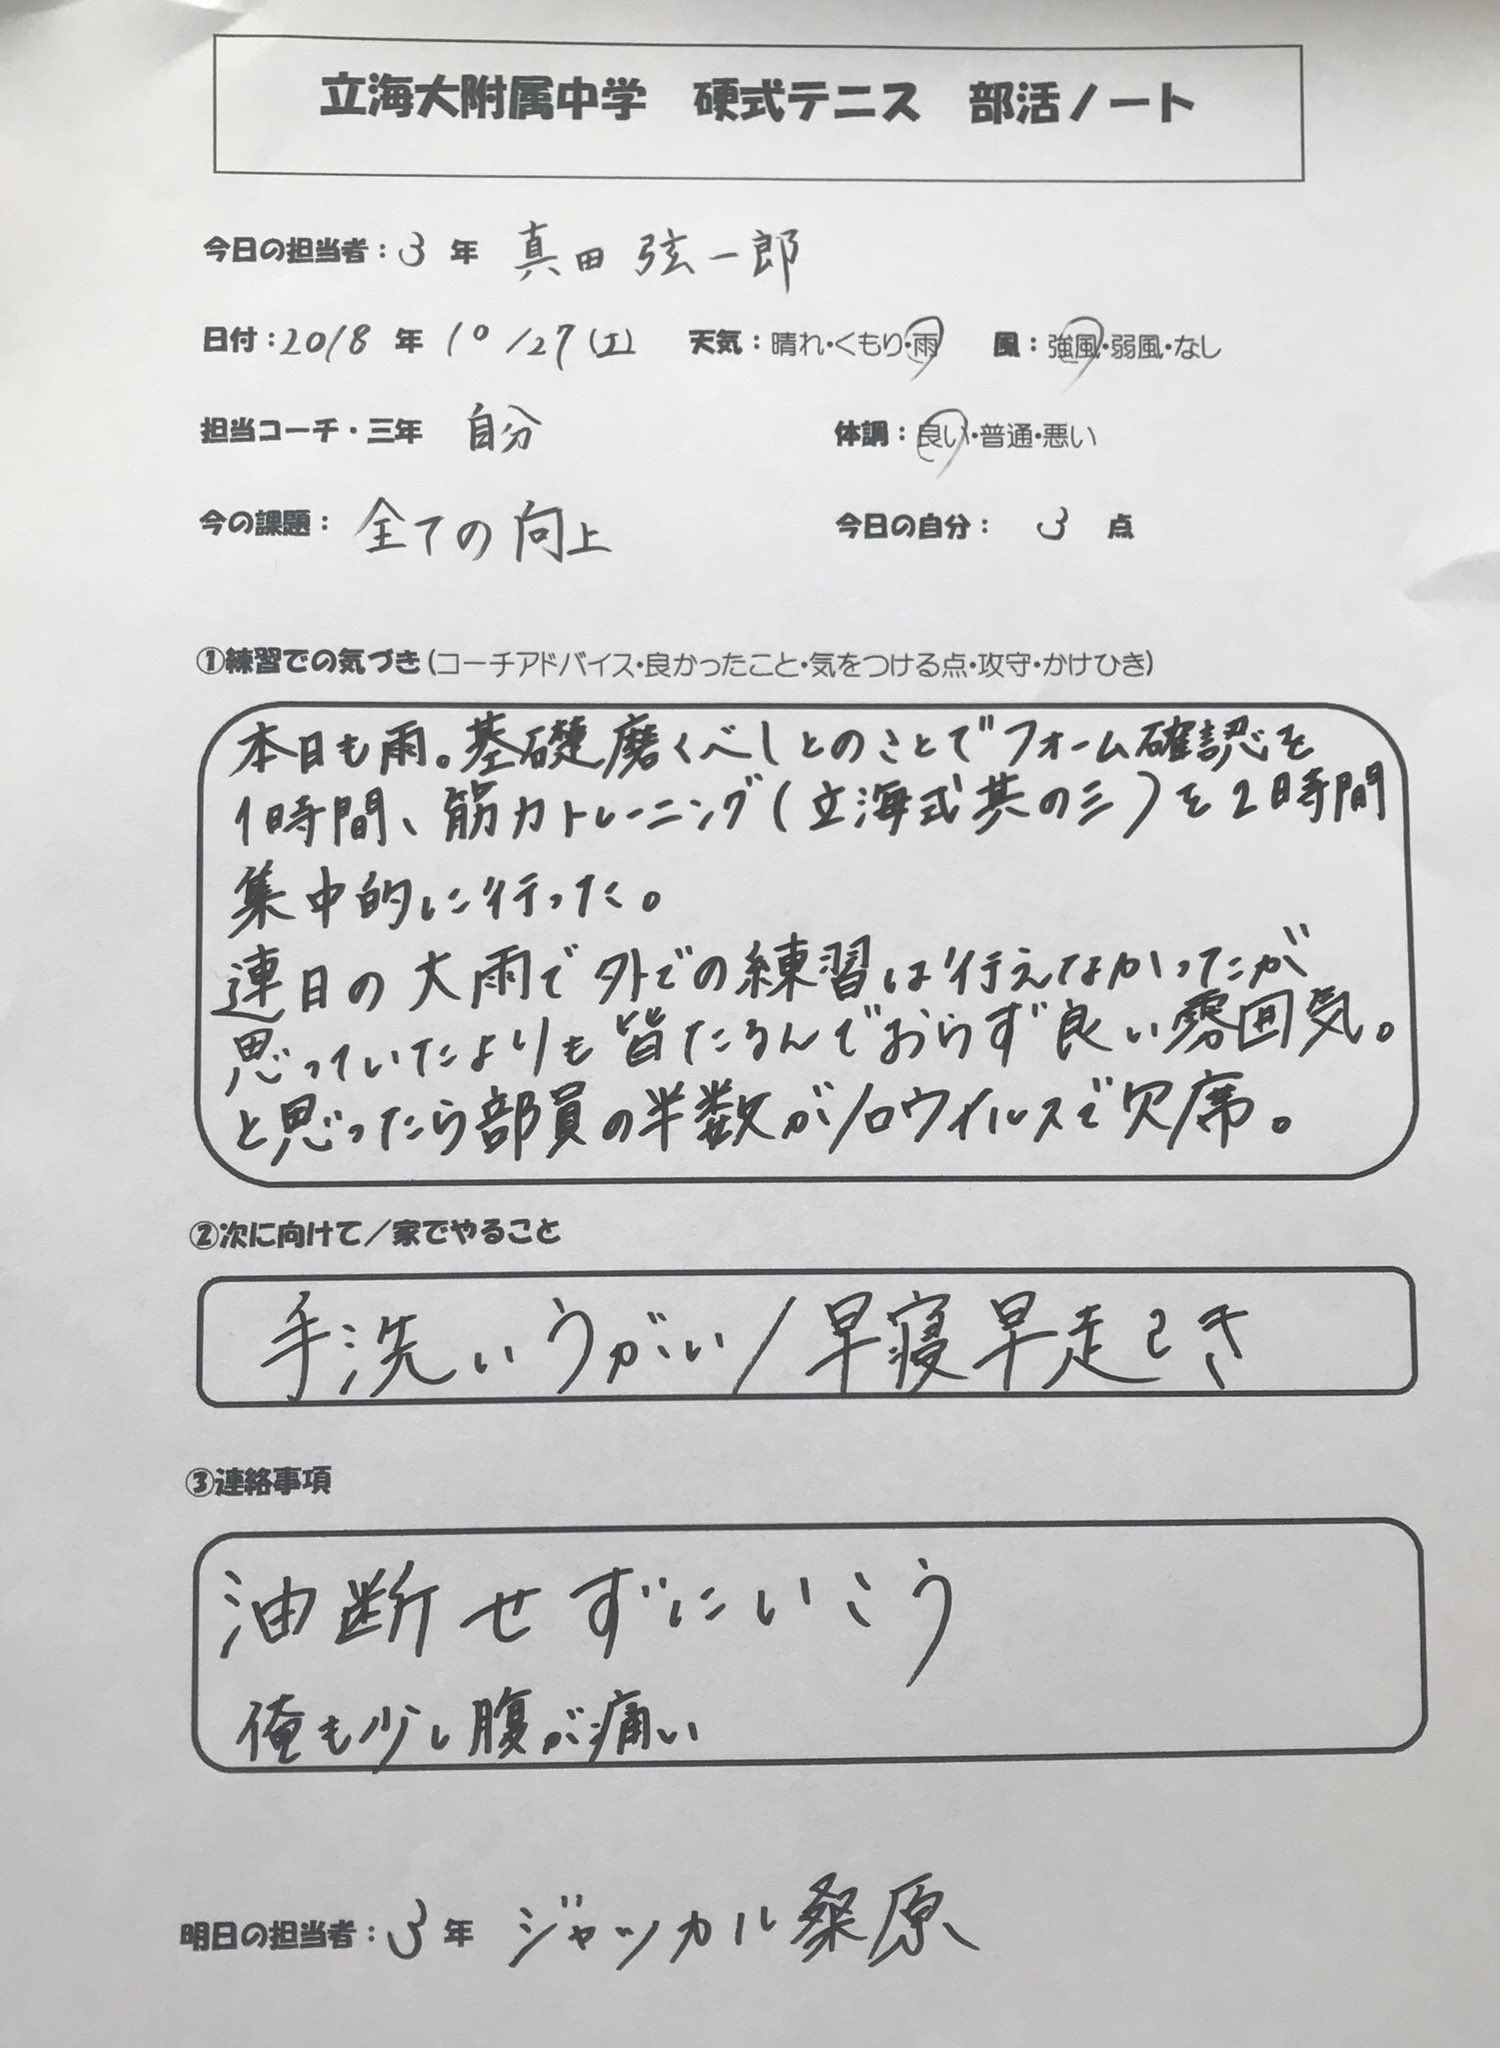 立海大附属中学　硬式テニス　部活ノート
今日の担当者：3 年 真田 弦一郎
日付：2018 年 10/27(土) 天気：晴れ・くもり・雨 風：強風・弱風・なし
担当コーチ・三年 自分 体調：良い・普通・悪い
今の課題： 全ての向上 今日の自分： 3 点
①練習での気づき(コーチアドバイス・良かったこと・気をつける点・攻守・かけひき)
本日も雨。基礎磨くべしとのことでフォーム確認を
1時間、筋力トレーニング(立海式其の三)を2時間
集中的に行った。
連日の大雨で外での練習は行えなかったが
思っていたよりも皆たるんでおらず良い雰囲気。
と思ったら部員の半数がノロウイルスで欠席。
②次に向けて／家でやること
手洗いうがい/早寝早起き
③連絡事項
油断せずにいこう
俺も少し腹が痛い
明日の担当者：3 年 ジャッカル桑原